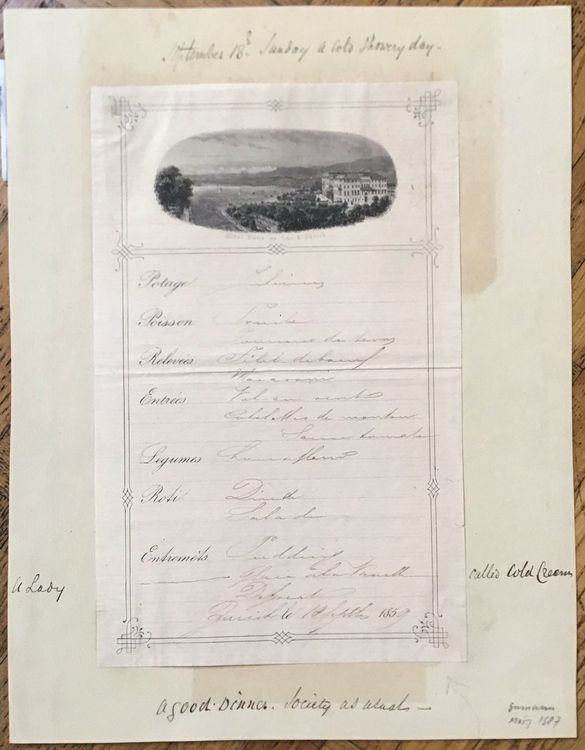 September 18th. Sunday a cold showery day.
Hôtel Baur au Lac à Zurich
Potage
Poisson Truite
Pommes de terre
Relevées Filet de boeuf
Macaroni
Entrées Vol au vent
Cotelettes de mouton
Sauce tomate
Légumes Choux fleurs
Roti Dinde
Salade
Entremêts Pudding
Glace à la Vanille
Dessert
Zurich le 18 Septbr 1859
a Lady
called Cold Cream
a good Dinner. Society as usual
1887